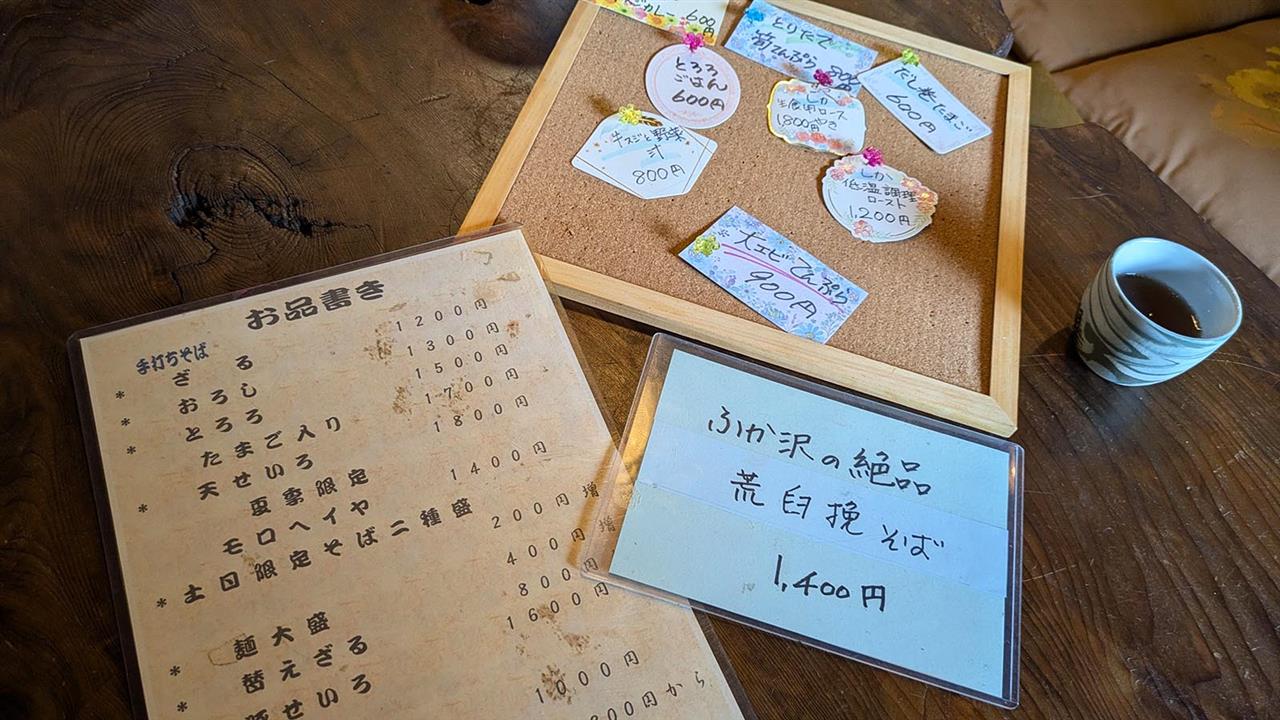 お品書き
手打ちそば
* ざる 1200円
* おろし 1300円
* とろろ 1500円
たまご入り 1700円
* 天せいろ 1800円
夏季限定
モロヘイヤ 1400円
* 土日限定そば二種盛 200円増
* 麺大盛 400円増
* 替えざる 800円
* せいろ 1600円
1000円
00円から
カレー 600円
とりたて
筍てんぷら 800
とろろ
ごはん
600円
しか
生食用ロース
1,800円
だし巻たまご
600円
牛スジと野菜
800円
しか
低温調理
ロースト
1,200円
大エビてんぷら
900円
ふか沢の絶品
荒臼挽そば
1,400円